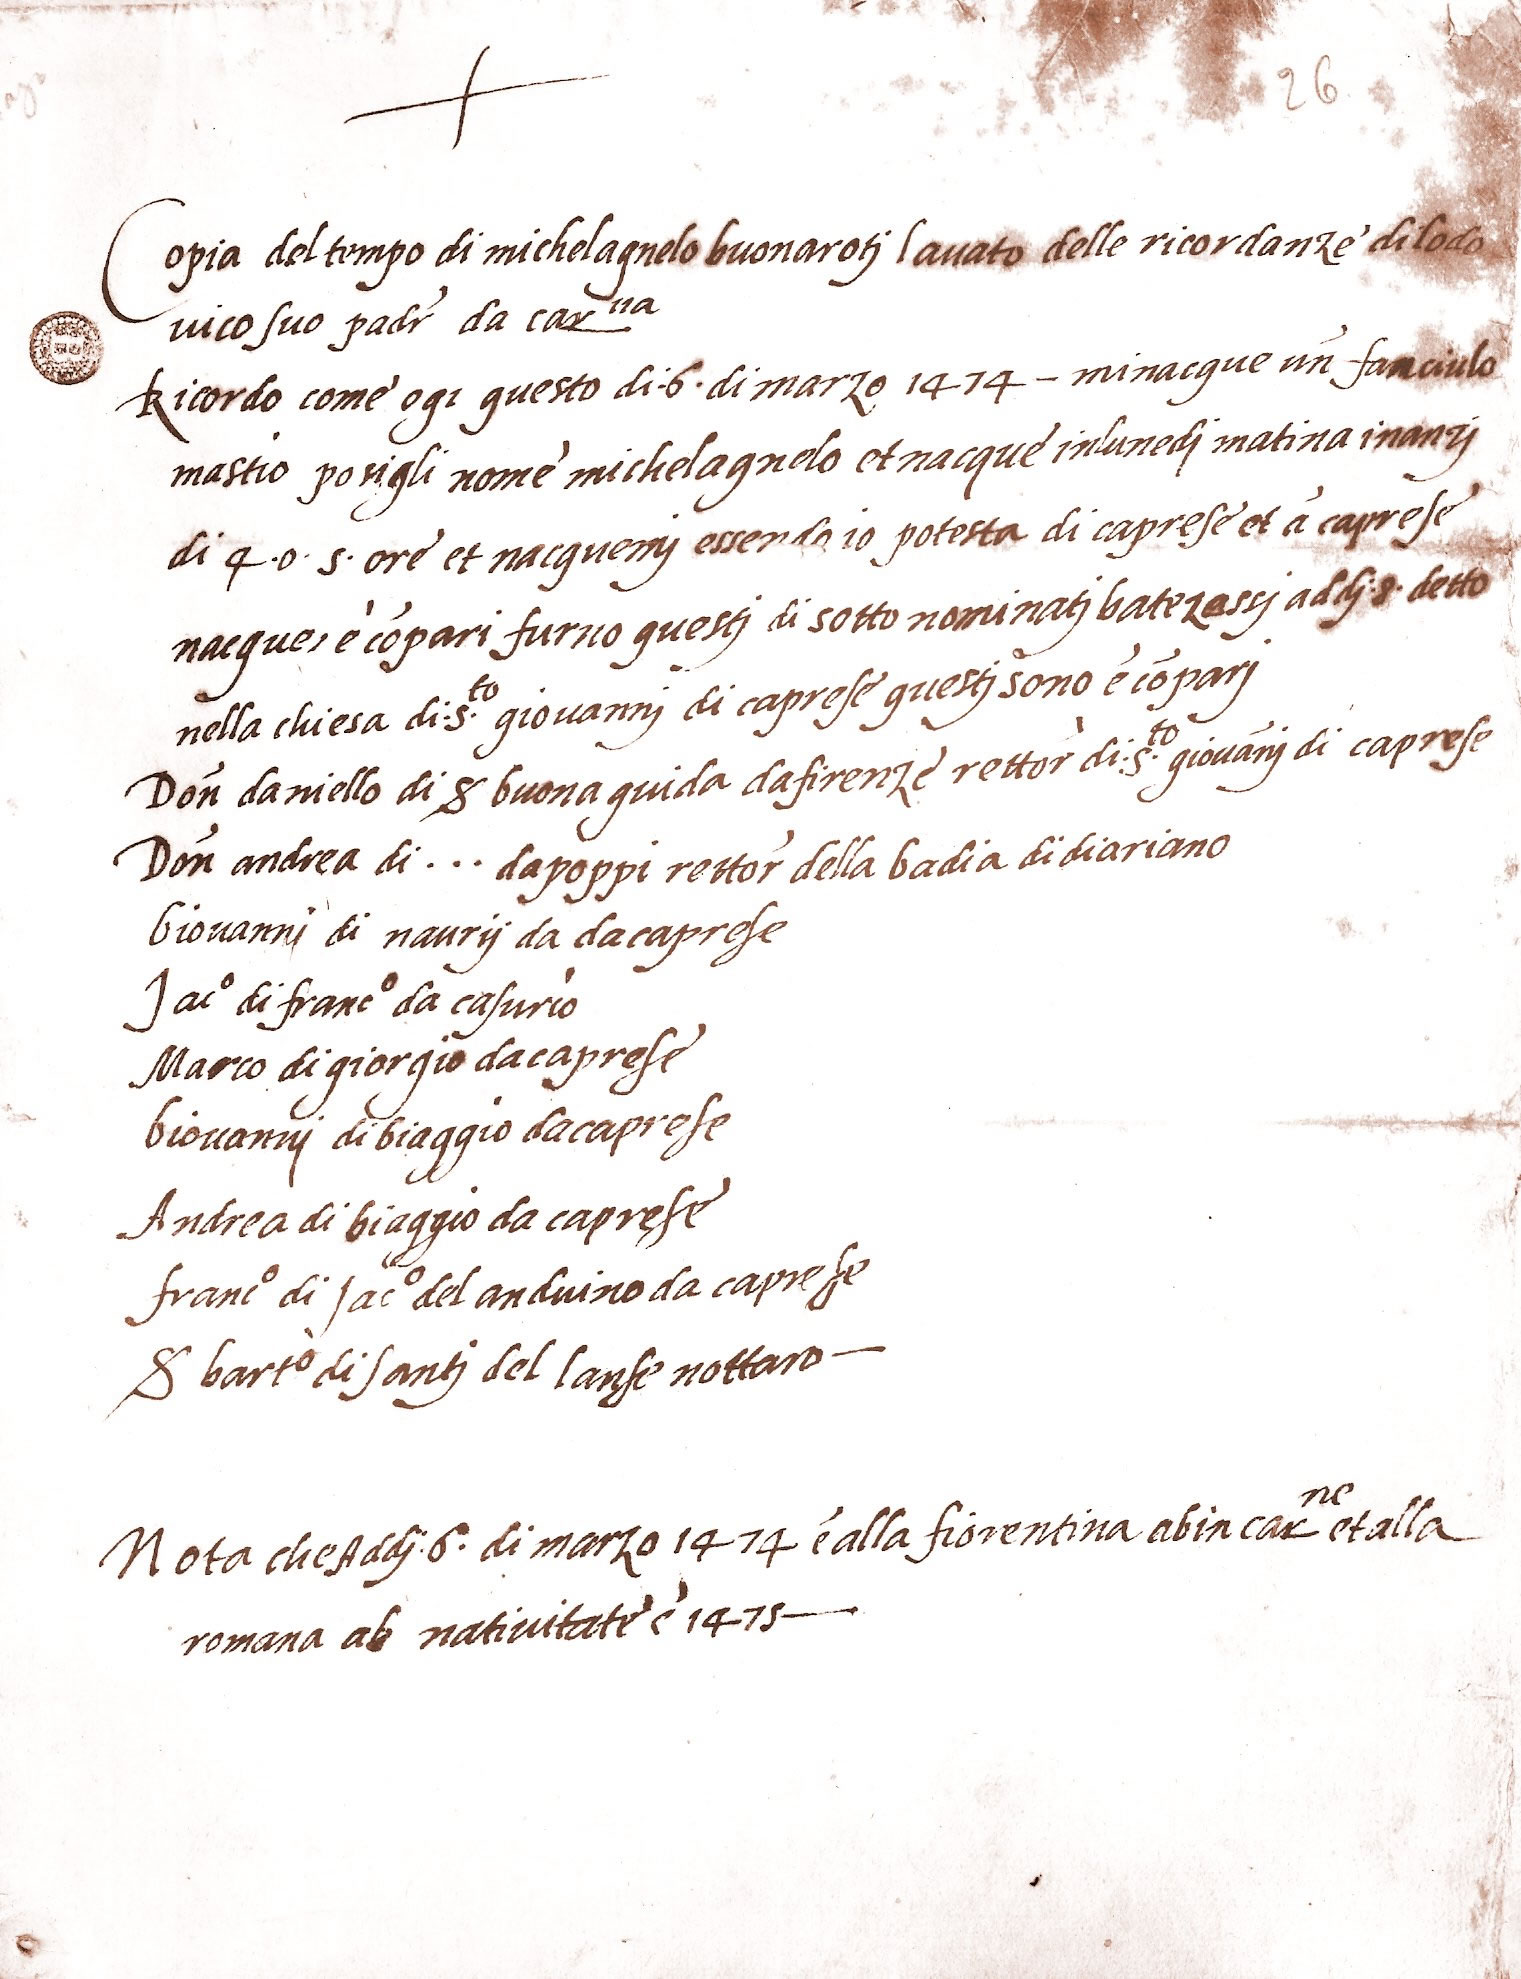 26
Copia del tempo di michelagnelo buonarotj lauato delle ricordanze di lodo
uico suo padr da car.na
Ricordo come ogi questo di .6. di marzo 1474 – mi nacque un fanciulo
mastio posigli nome michelagnelo et nacque in lunedj matina inanzj
di 4.o.5. ore et nacquemj essendo io potesta di caprese et a caprese
nacque, e cōpari furno questj di sotto nominatj batezossj addj .8. detto
nella chiesa di .s.to giouannj di caprese questj sono e cōparj
Don daniello di S buonaguida da firenze rettor di .s.to giouānj di caprese
Don andrea di . . . da poppi rettor della badia di diariano
Giouannj di naurij da da caprese
Jac.o di franc.o da casurio
Marco di giorgio da caprese
Giouannj di biaggio da caprese
Andrea di biaggio da caprese
franc.o di Jac.o del anduino da caprese
S bart.o di santj del lanse nottaro —
Nota che Addj .6. di marzo 1474 é alla fiorentina ab incar.ne et alla
romana ab natiuitate é 1475 —